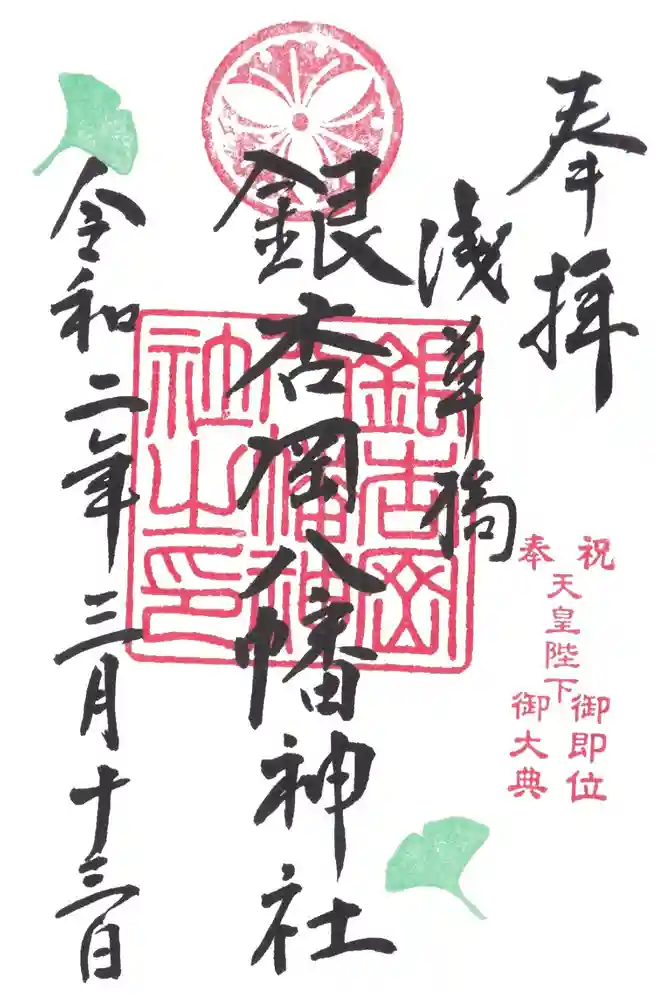 奉拝
奉祝
天皇陛下
御即位
御大典
浅草橋
銀杏岡八幡神社
銀杏岡
八幡神
社之印
令和二年三月十三日